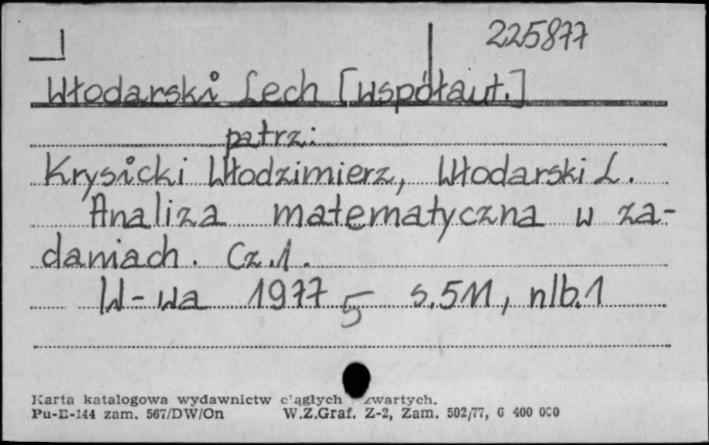 225877
Włodarski Lech [współaut.]
patrz:
Krysicki Włodzimierz, Włodarski L.
Analiza matematyczna w za-
daniach. Cz.1.
W-wa 1977 5 s.511, nlb.1
Karta katalogowa wydawnictw ciągłych zwartych.
Pu-E-144 zam. 567/DW/On W.Z.Graf. Z-2, Zam. 502/77, 6 400 000